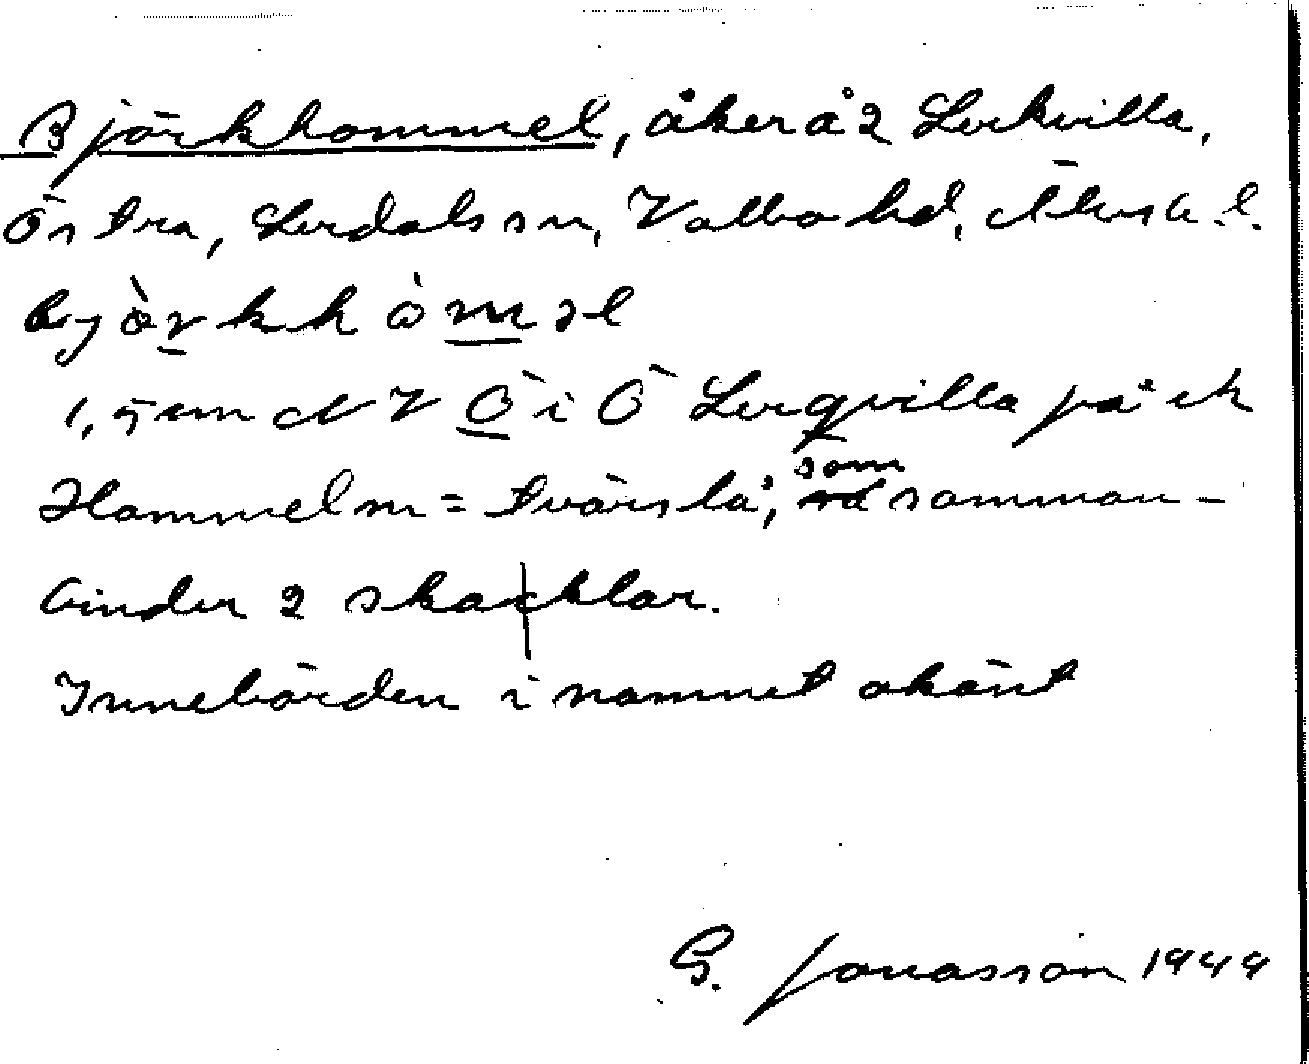 Björkhommel, åker å 2 Lerkvilla,
Östra, Lerdals sn, Valbo hd, Älvsb. l.
bjòrkhòməl
1,5 cm NV Ö i Ö Lerqvilla på ek
Hammel m = tvärslå, som samman-
binder 2 skacklar.
Innebörden i namnet okänt
G. Jonasson 1944